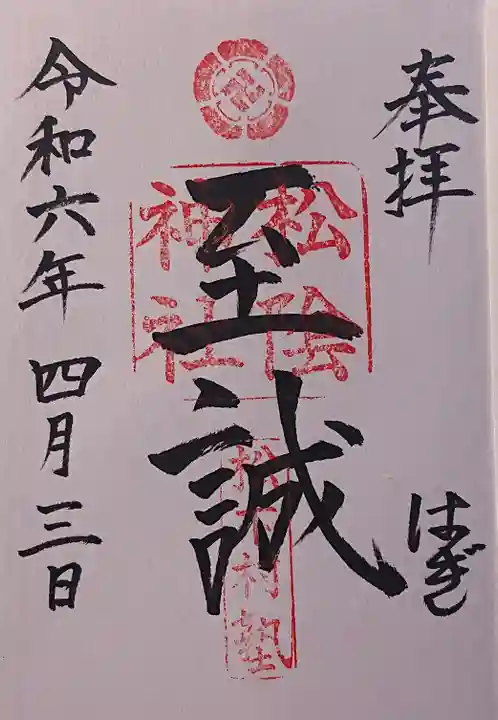 奉拝
はぎし
松陰
神社
至誠
松下村塾
令和六年 四月三日